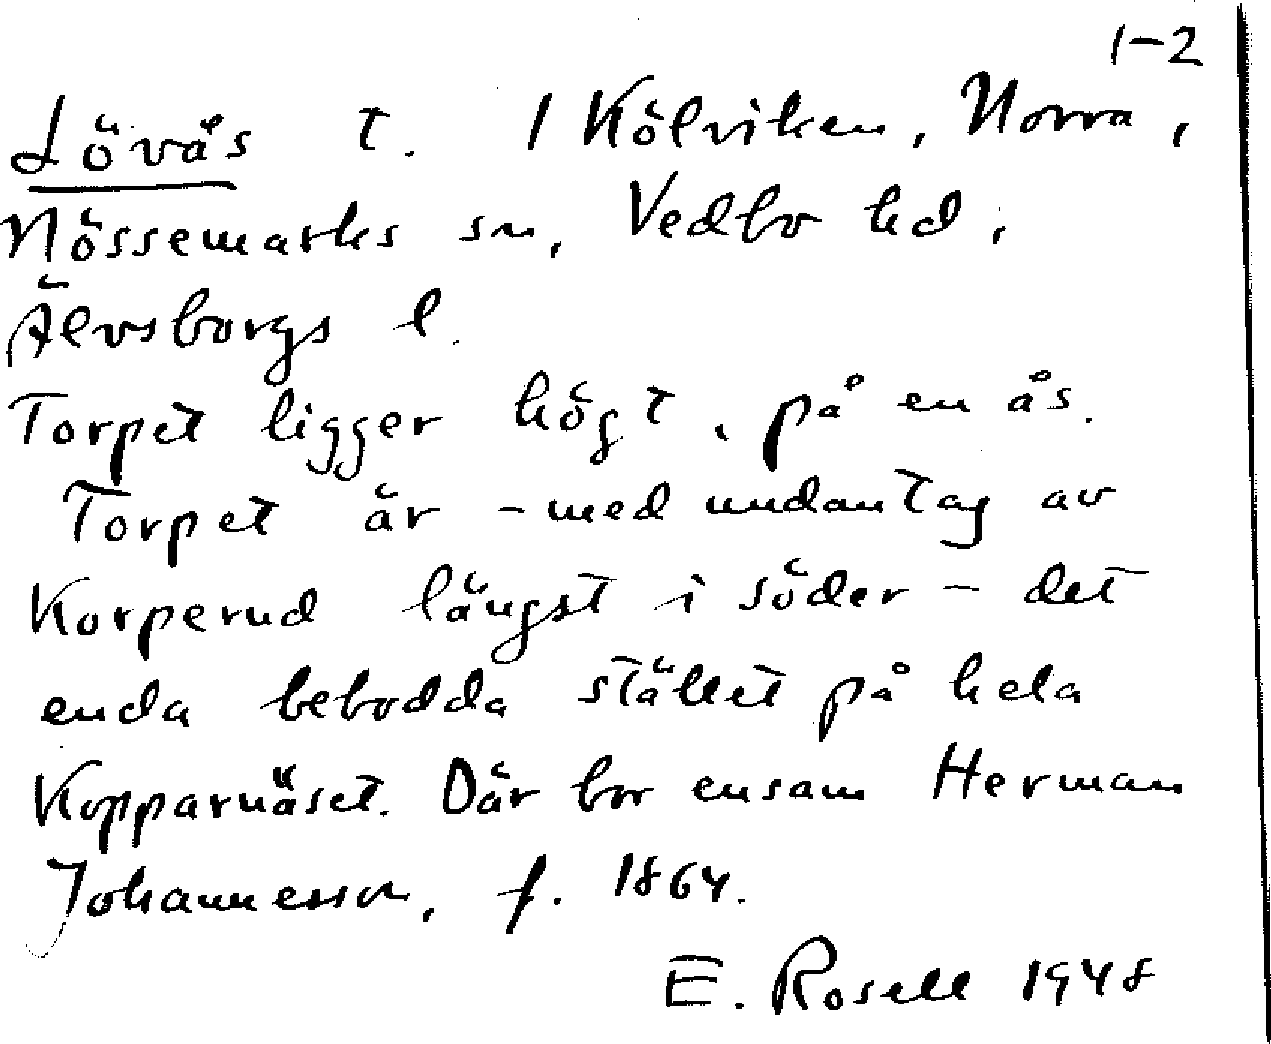 1-2
Lövås t. / Kölviken, Norra,
Nössemarks sn, Vedbo hd,
Älvsborgs l.
Torpet ligger högt, på en ås.
Torpet är - med undantag av
Korperud längst i söder - det
enda bebodda stället på hela
Kopparnäset. Där bor ensam Herman
Johannesson, f. 1864.
E. Rosell 1948